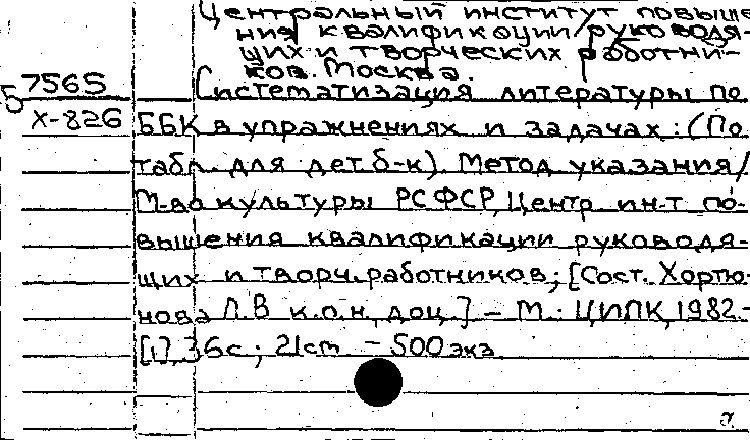 Центральный институт повыше-
ния квалификации руководя-
щих и творческих работни-
ков. Москва.
Б 7565
Х-826
Систематизация литературы по
ББК в упражнениях и задачах: (По
табл. для дет. б-к). Метод указания/
М-во культуры РСФСР, Центр ин-т по-
вышения квалификации руководя-
щих и творч. работников; [Сост. Хортю-
нова Л.В к.о.н, доц.] - М.: ЦИПК, 1982.-
[1], 36с; 21cm - 500 экз